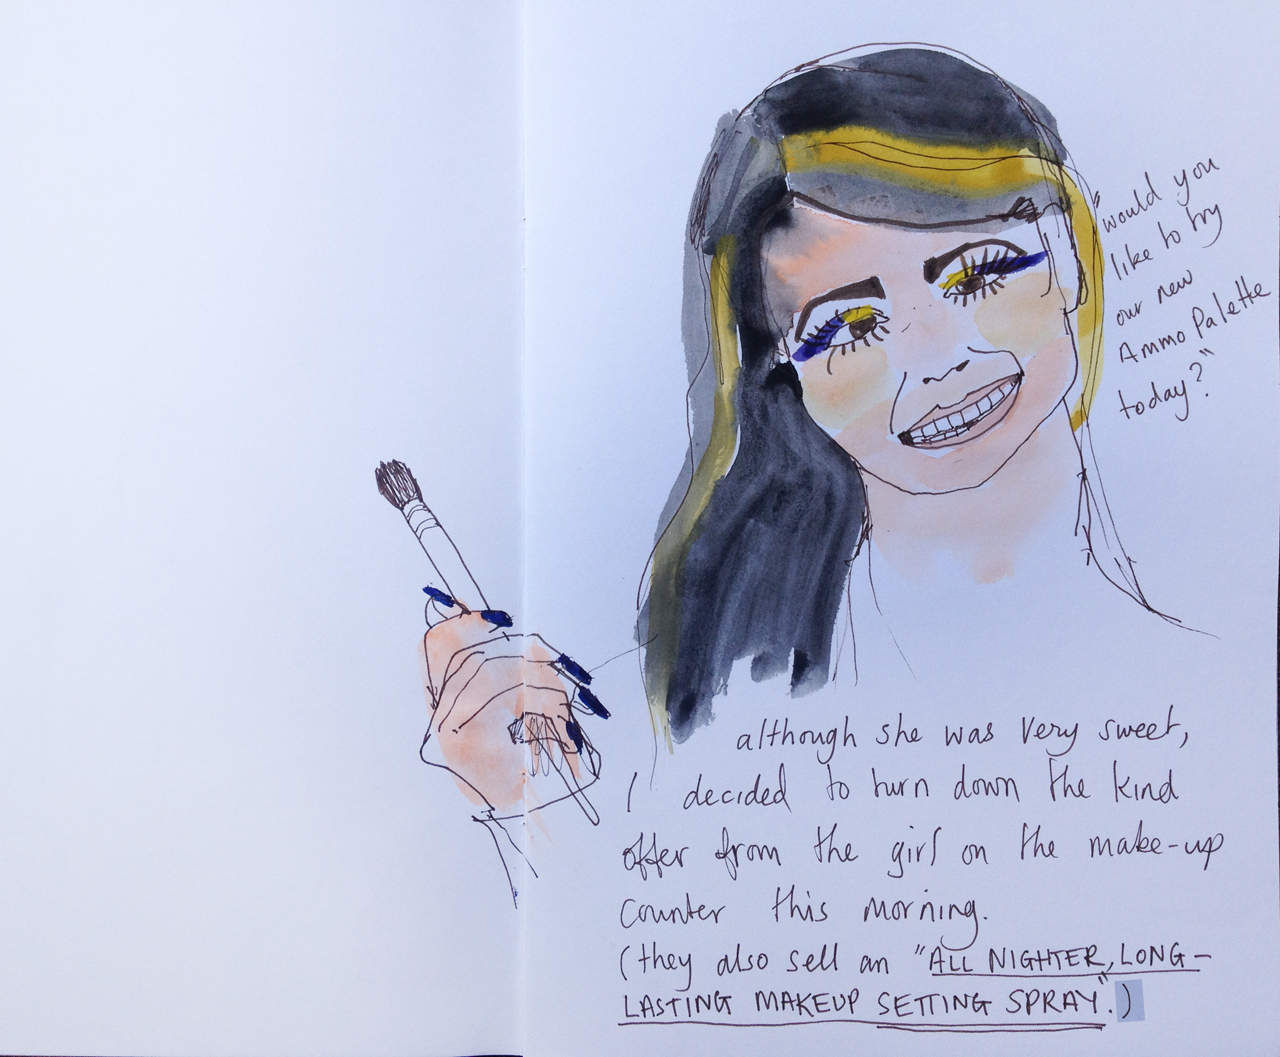 "would you
like to try
our new
Ammo Palette
today?"
although she was very sweet,
I decided to turn down the kind
offer from the girl on the make-up
counter this morning.
(they also sell an "ALL NIGHTER, LONG-
LASTING MAKEUP SETTING SPRAY".)